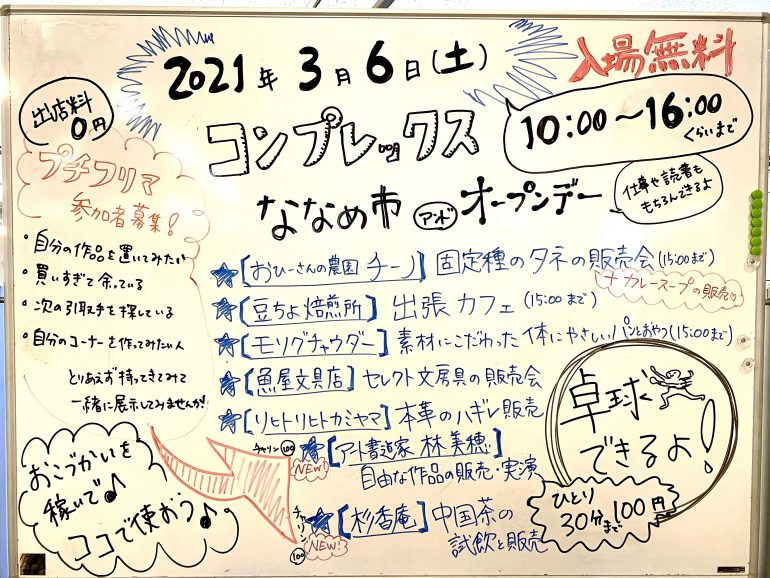 2021年3月6日(土)
入場無料
出店料
0円
コンプレックス
10:00〜16:00
くらいまで
ななめ市 アンド オープンデー
仕事や読書も
もちろんできるよ
プチフリマ
参加者募集!
・自分の作品を置いてみたい
・買いすぎて余っている
・次の引取手を探している
・自分のコーナーを作ってみたい人
とりあえず持ってきてみて
一緒に展示してみませんか!
★[おひーさんの農園 チーノ] 固定種のタネの販売会(15:00まで)
+カレースープの販売
★[豆ちよ焙煎所] 出張カフェ(15:00まで)
★[モリグチャウダー] 素材にこだわった体にやさしいパンとおやつ(15:00まで)
★[魚屋文具店] セレクト文房具の販売会
★[リヒトリヒトカミヤマ] 本革のハギレ販売
★[アート書道家 林美穂]
NEW!
自由な作品の販売・実演
★[杉香庵] 中国茶の
NEW!
試飲と販売
チャリン 100
チャリン 100
おこづかいを
稼いで♪
ココで使おう♪
卓球
できるよ!
ひとり
30分まで 100円